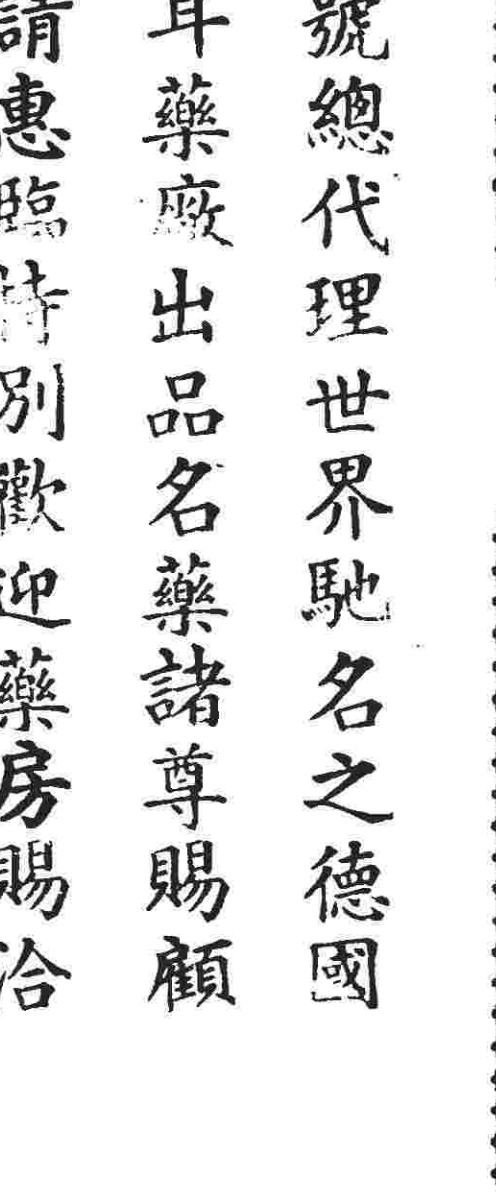 號總代理世界馳名之德國
藥廠出品名藥諸尊賜顧
請惠臨特別歡迎藥房賜洽